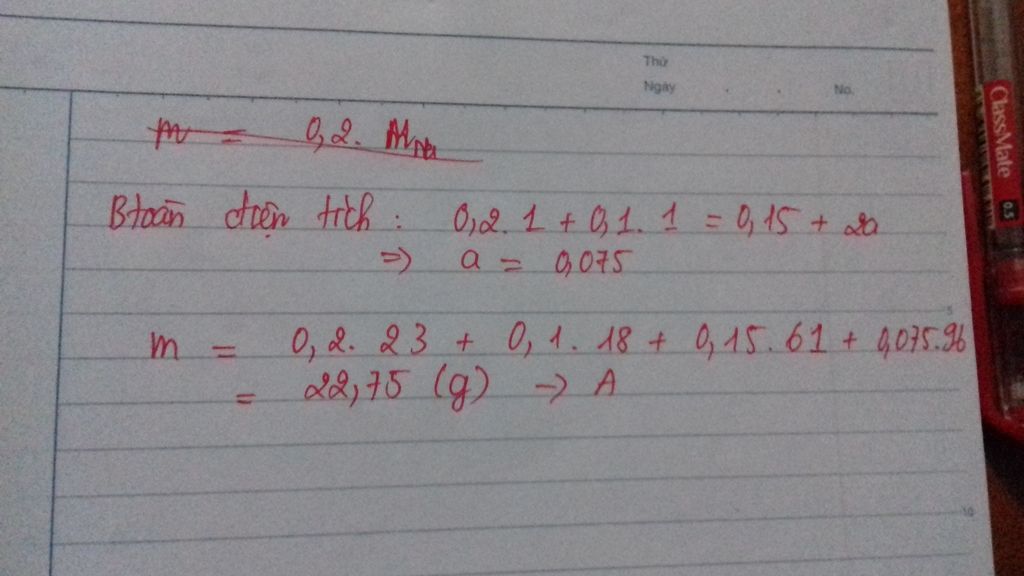 Thứ
Ngày . . No.
m = 0,2. MNa
Btoàn điện tích : 0,2. 1 + 0,1. 1 = 0,15 + 2a
=> a = 0,075
5
m = 0,2. 23 + 0,1. 18 + 0,15. 61 + 0,075.96
= 22,75 (g) → A
10
ClassMate
0.5